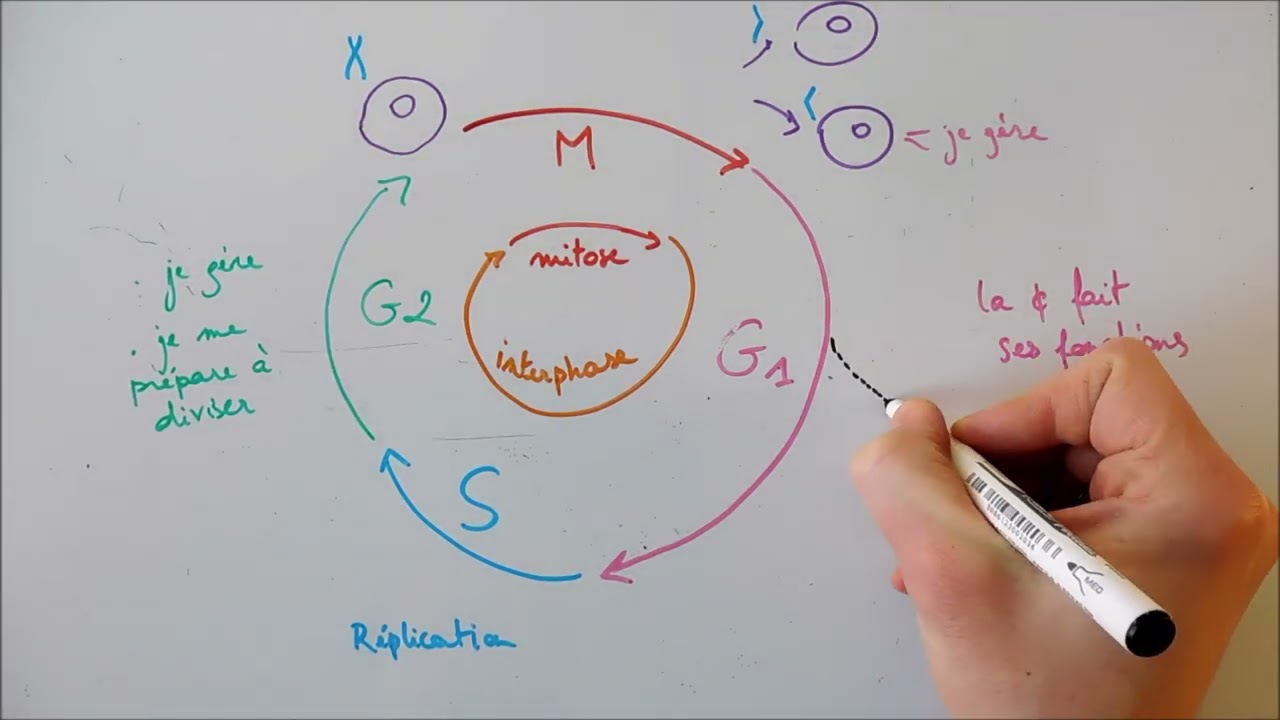 M
je gère
mitose
la ¢ fait
ses fonctions
. je gère
. je me
prépare à
diviser
G2
interphase
G1
S
Réplication
MED